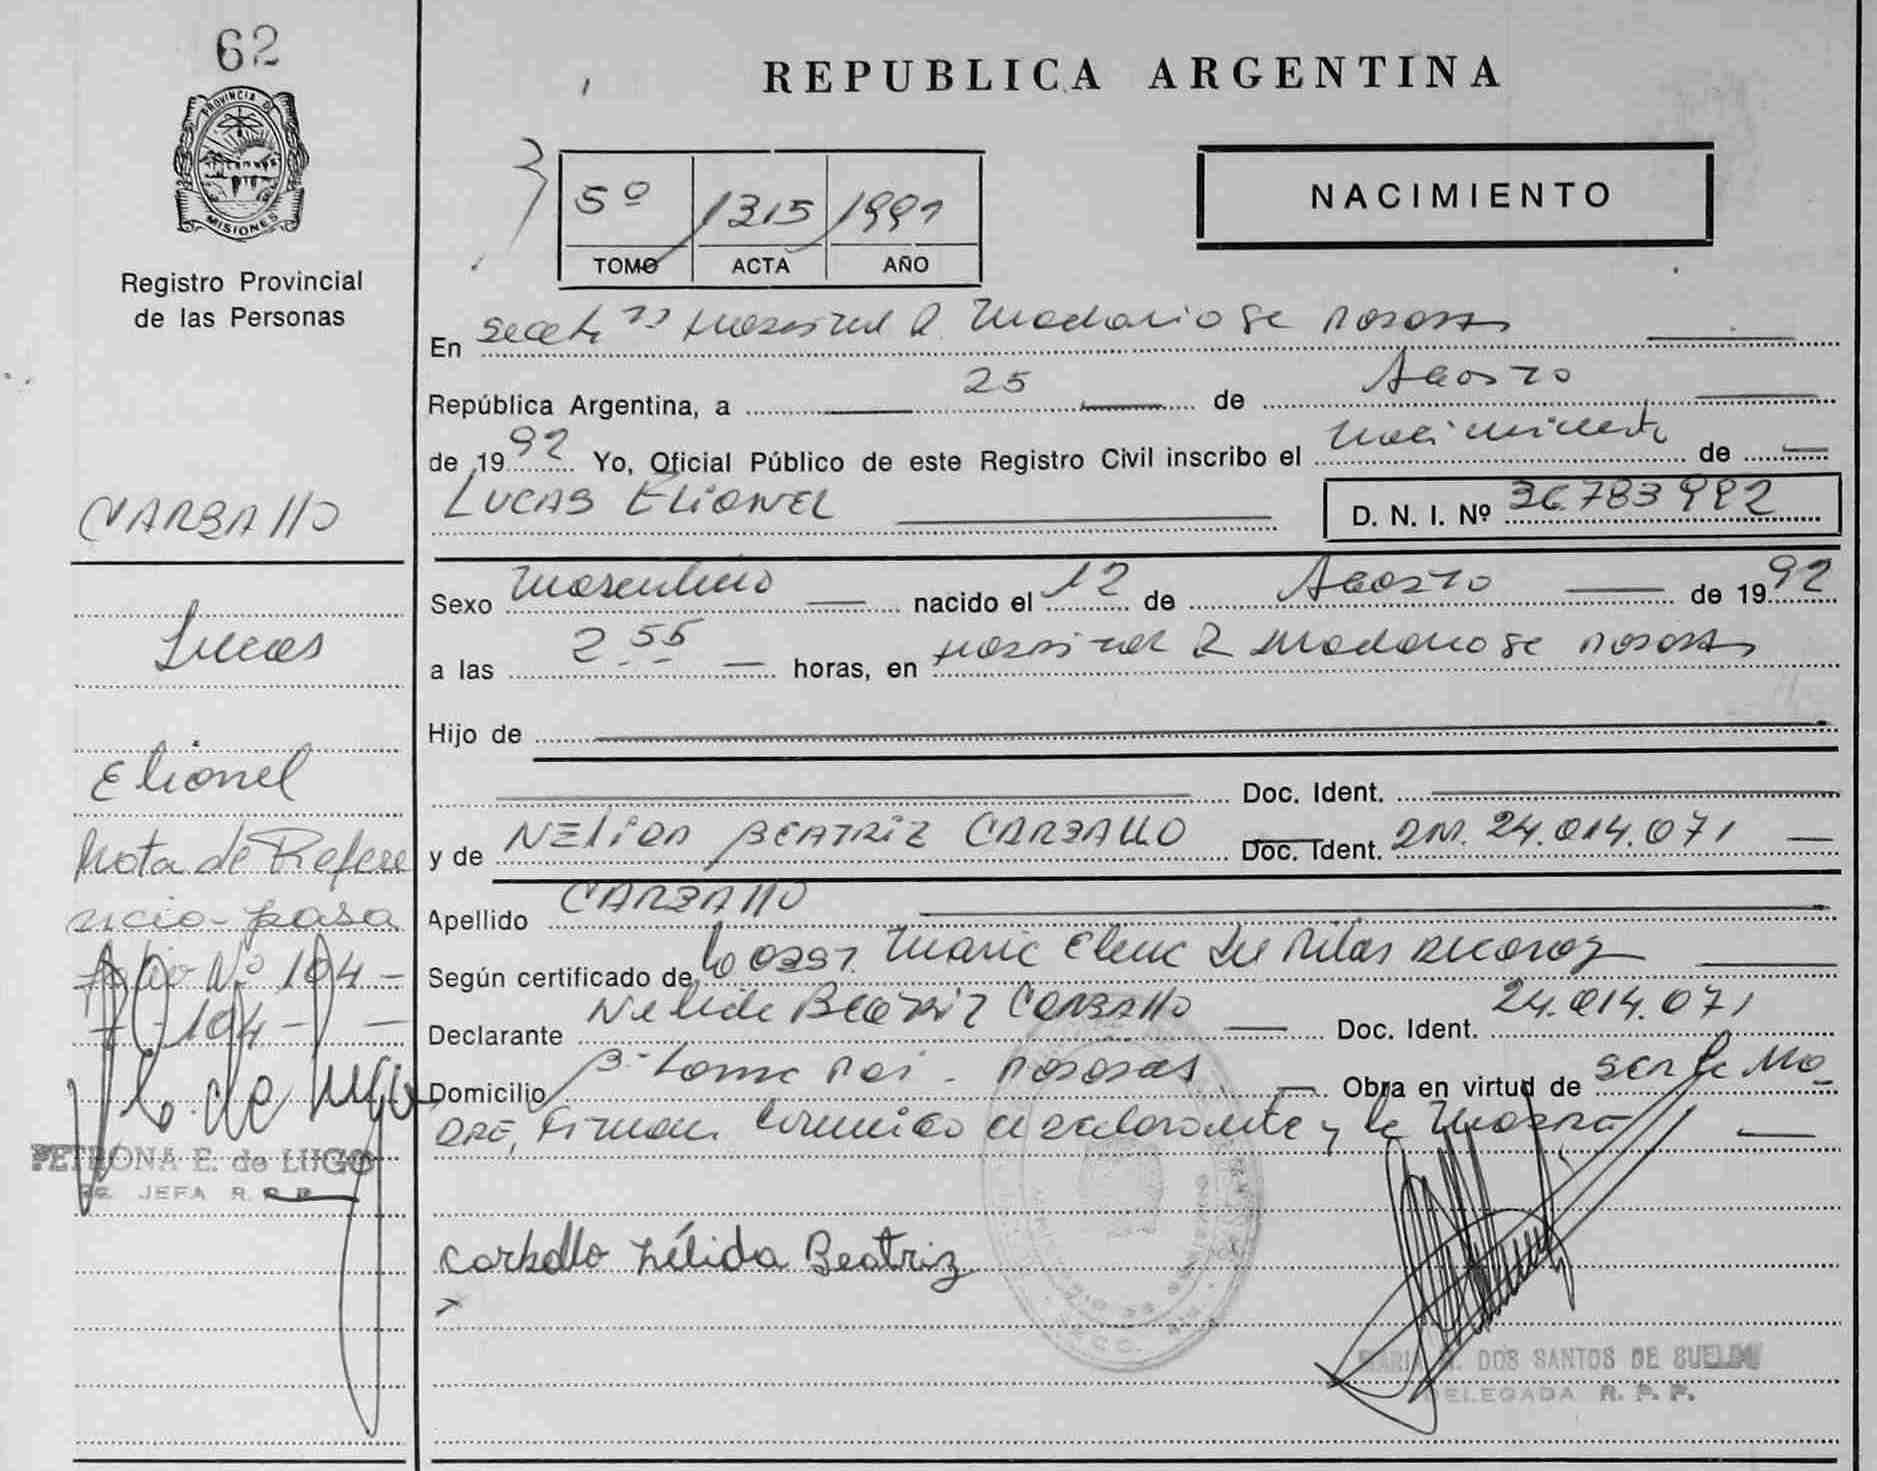 62
PROVINCIA DE
MISIONES
Registro Provincial
de las Personas
CARBALLO
Lucas
Elionel
Nota de Refere
ncia - pasa
folio Nº 104 -
- 104 -
PETRONA E. de LUGO
JEFA R.
REPUBLICA ARGENTINA
NACIMIENTO
5º 1315 1991
TOMO ACTA AÑO
En Hospital R. Madariaga Posadas
República Argentina, a 25 de Agosto
de 1992 Yo, Oficial Público de este Registro Civil inscribo el nacimiento de
LUCAS ELIONEL D. N. I. Nº 36.783.992
Sexo Masculino nacido el 12 de Agosto de 1992
a las 2 55 horas, en Hospital R Madariaga Posadas
Hijo de
Doc. Ident.
y de NELIDA BEATRIZ CARBALLO Doc. Ident. 24.014.071
Apellido CARBALLO
Según certificado de la Obst. Maria Elena del Pilar
Declarante Nelida Beatriz CARBALLO Doc. Ident. 24.014.071
Domicilio Posadas Obra en virtud de ser la Ma
dre, Firman conmigo el declarante y la
Carballo Nélida Beatriz
MARIA DOS SANTOS DE SUELDO
DELEGADA R. P. P.